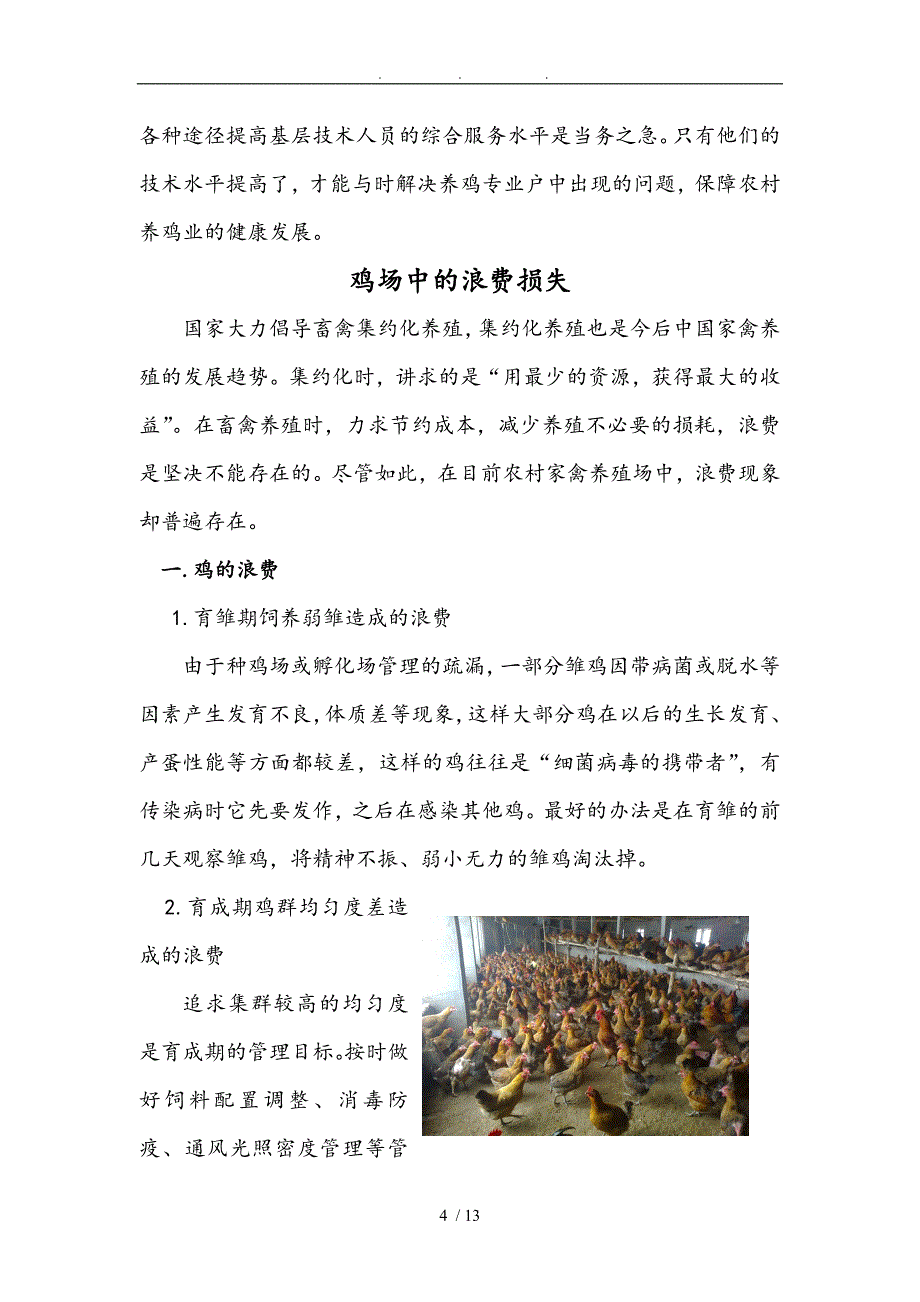 各种途径提高基层技术人员的综合服务水平是当务之急。只有他们的
技术水平提高了，才能与时解决养鸡专业户中出现的问题，保障农村
养鸡业的健康发展。
鸡场中的浪费损失
国家大力倡导畜禽集约化养殖，集约化养殖也是今后中国家禽养
殖的发展趋势。集约化时，讲求的是“用最少的资源，获得最大的收
益”。在畜禽养殖时，力求节约成本，减少养殖不必要的损耗，浪费
是坚决不能存在的。尽管如此，在目前农村家禽养殖场中，浪费现象
却普遍存在。
一.鸡的浪费
1.育雏期饲养弱雏造成的浪费
由于种鸡场或孵化场管理的疏漏，一部分雏鸡因带病菌或脱水等
因素产生发育不良，体质差等现象，这样大部分鸡在以后的生长发育、
产蛋性能等方面都较差，这样的鸡往往是“细菌病毒的携带者”，有
传染病时它先要发作，之后在感染其他鸡。最好的办法是在育雏的前
几天观察雏鸡，将精神不振、弱小无力的雏鸡淘汰掉。
2.育成期鸡群均匀度差造
成的浪费
追求集群较高的均匀度
是育成期的管理目标。按时做
好饲料配置调整、消毒防
疫、通风光照密度管理等管
4 / 13